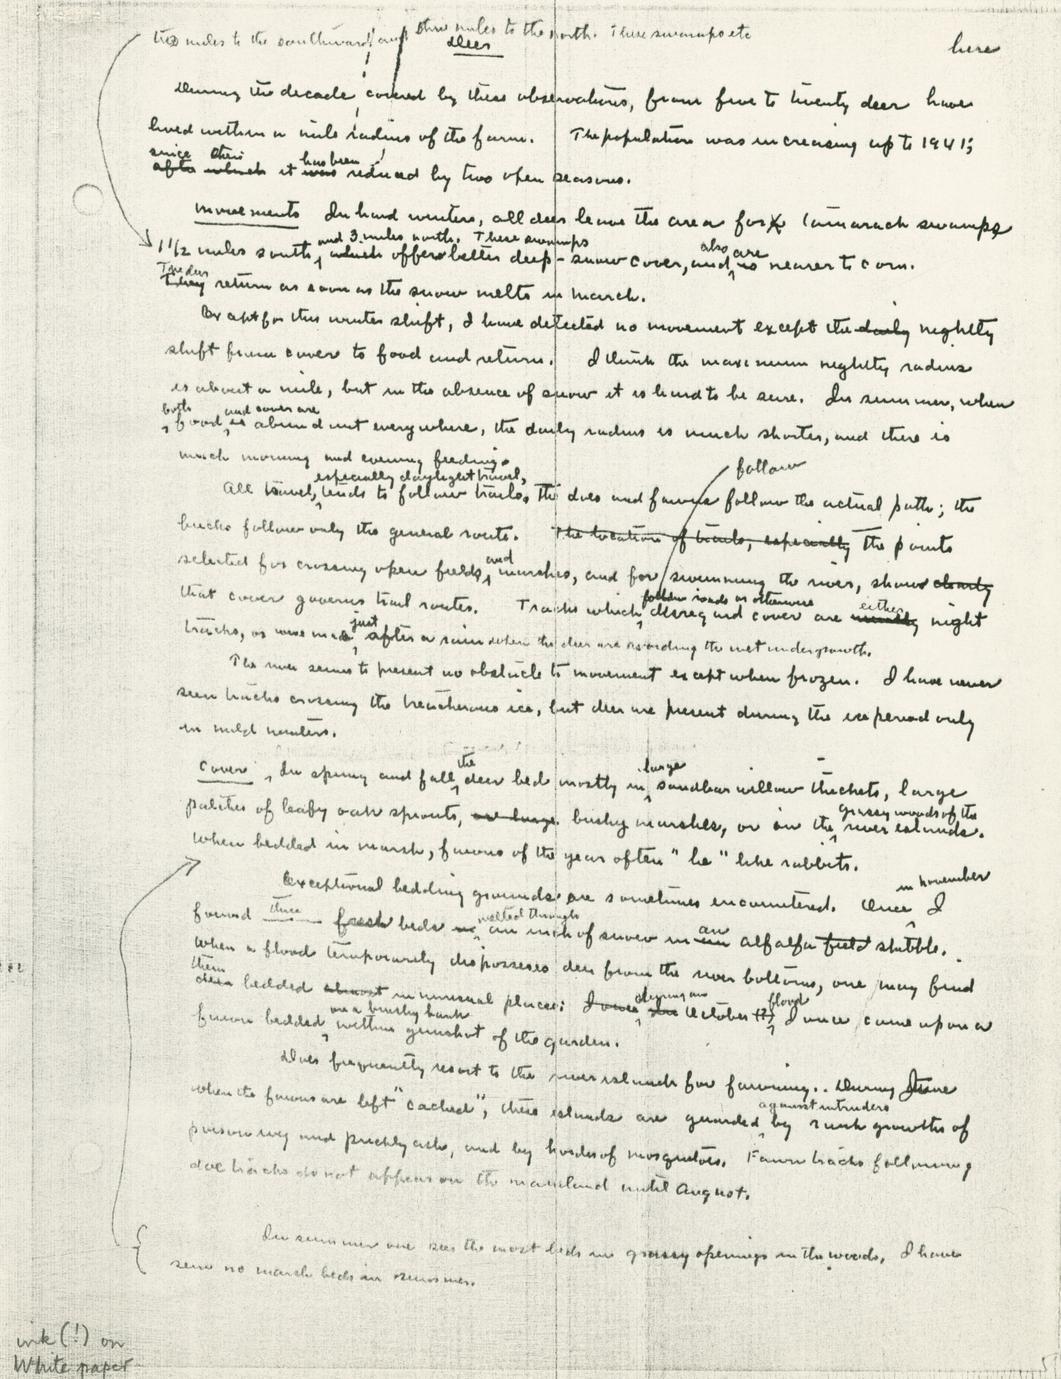 two miles to the southward and three miles to the north. These swamps etc
here
Deer
During the decade covered by these observations, from five to twenty deer have
lived within a mile radius of the farm. The population was increasing up to 1941;
since then has been
after which it was reduced by two open seasons.
Movements In hard winters, all deer leave the area for tamarack swamps
and 3 miles north. These swamps also are
1 1/2 miles south, which offers better deep-snow cover, and is nearer to corn.
The deer
They return as soon as the snow melts in March.
Except for this winter shift, I have detected no movement except the daily nightly
shift from cover to food and return. I think the maximum nightly radius
is about a mile, but in the absence of snow it is hard to be sure. In summer, when
both and cover are
food is abundant everywhere, the daily radius is much shorter, and there is
much morning and evening feeding.
follow
especially daylight travel,
All travel, tends to follow trails. The does and fawns follow the actual path; the
bucks follow only the general route. The location of trails, especially the points
and
selected for crossing open fields, marshes, and for swimming the river, shows clearly
follow roads or otherwise either
that cover governs trail routes. Tracks which disregard cover are usually night
just
tracks, or were made after a rain when the deer are avoiding the wet undergrowth.
The river seems to present no obstacle to movement except when frozen. I have never
seen tracks crossing the treacherous ice, but deer are present during the ice period only
in mild winters.
the large
Cover, In spring and fall, deer bed mostly in sandbar willow thickets, large
grassy woods of the
patches of leafy oak sprouts, or large brushy marshes, or on the river islands.
When bedded in marsh, fawns of the year often "lie" like rabbits.
in November
Exceptional bedding grounds are sometimes encountered. Once I
three melted through an
found fresh beds in an inch of snow in an alfalfa field stubble.
When a flood temporarily disposseses deer from the river bottoms, one may find
them during an flood
deer bedded almost in unusual places: I once in October (?) I once came upon a
on a brushy bank
fawn bedded within gunshot of the garden.
Does frequently resort to the river islands for fawning. During June
against intruders
when the fawns are left "cached", these islands are guarded by rank growths of
poison ivy and prickly ash, and by hordes of mosquitoes. Fawn tracks following
doe tracks do not appear on the mainland until August.
In summer one sees the most beds in grassy openings in the woods. I have
seen no marsh beds in summer.
ink (!) on
White paper